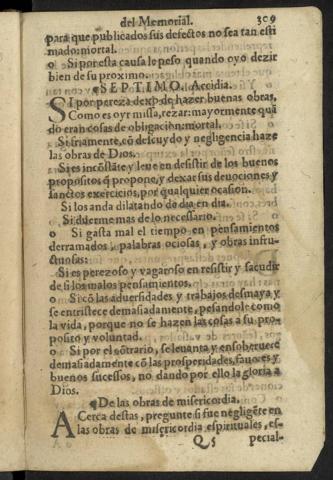 del Memorial. 309
para que publicados sus defectos no sea tan esti
mado: mortal.
o Si por esta causa le peso quando oyo dezir
bien de su proximo.
¶ SEPTIMO. Accidia.
SI por pereza dexo de hazer buenas obras,
Como es oyr missa, rezar: mayormente quã
do eran cosas de obligacion: mortal.
Si friamente, cõ descuydo y negligencia haze
las obras de Dios.
Si es incõstãte y leue en desistir de los buenos
propositos q̃ propone, y dexar sus deuociones y
sanctos exercicios, por qualquier ocasion.
Si los anda dilatando de dia en dia.
Si duerme mas de lo necessario.
o Si gasta mal el tiempo en pensamientos
derramados, palabras ociosas, y obras infru-
ctuosas:
Si es perezoso y vagaroso en resistir y sacudir
de si los malos pensamientos.
o Si cõ las aduersidades y trabajos desmaya y
se entristece demasiadamente, pesandole como
la vida, porque no se hazen las cosas a su pro-
posito y voluntad.
o Si por el cõtrario, se leuanta y ensoberuece
demasiadamente cõ las prosperidades, fauores y
buenos sucessos, no dando por ello la gloria a
Dios.
¶ De las obras de misericordia.
ACerca destas, pregunte si fue negligẽte en
las obras de misericordia espirituales, es-
Q5 pecial-